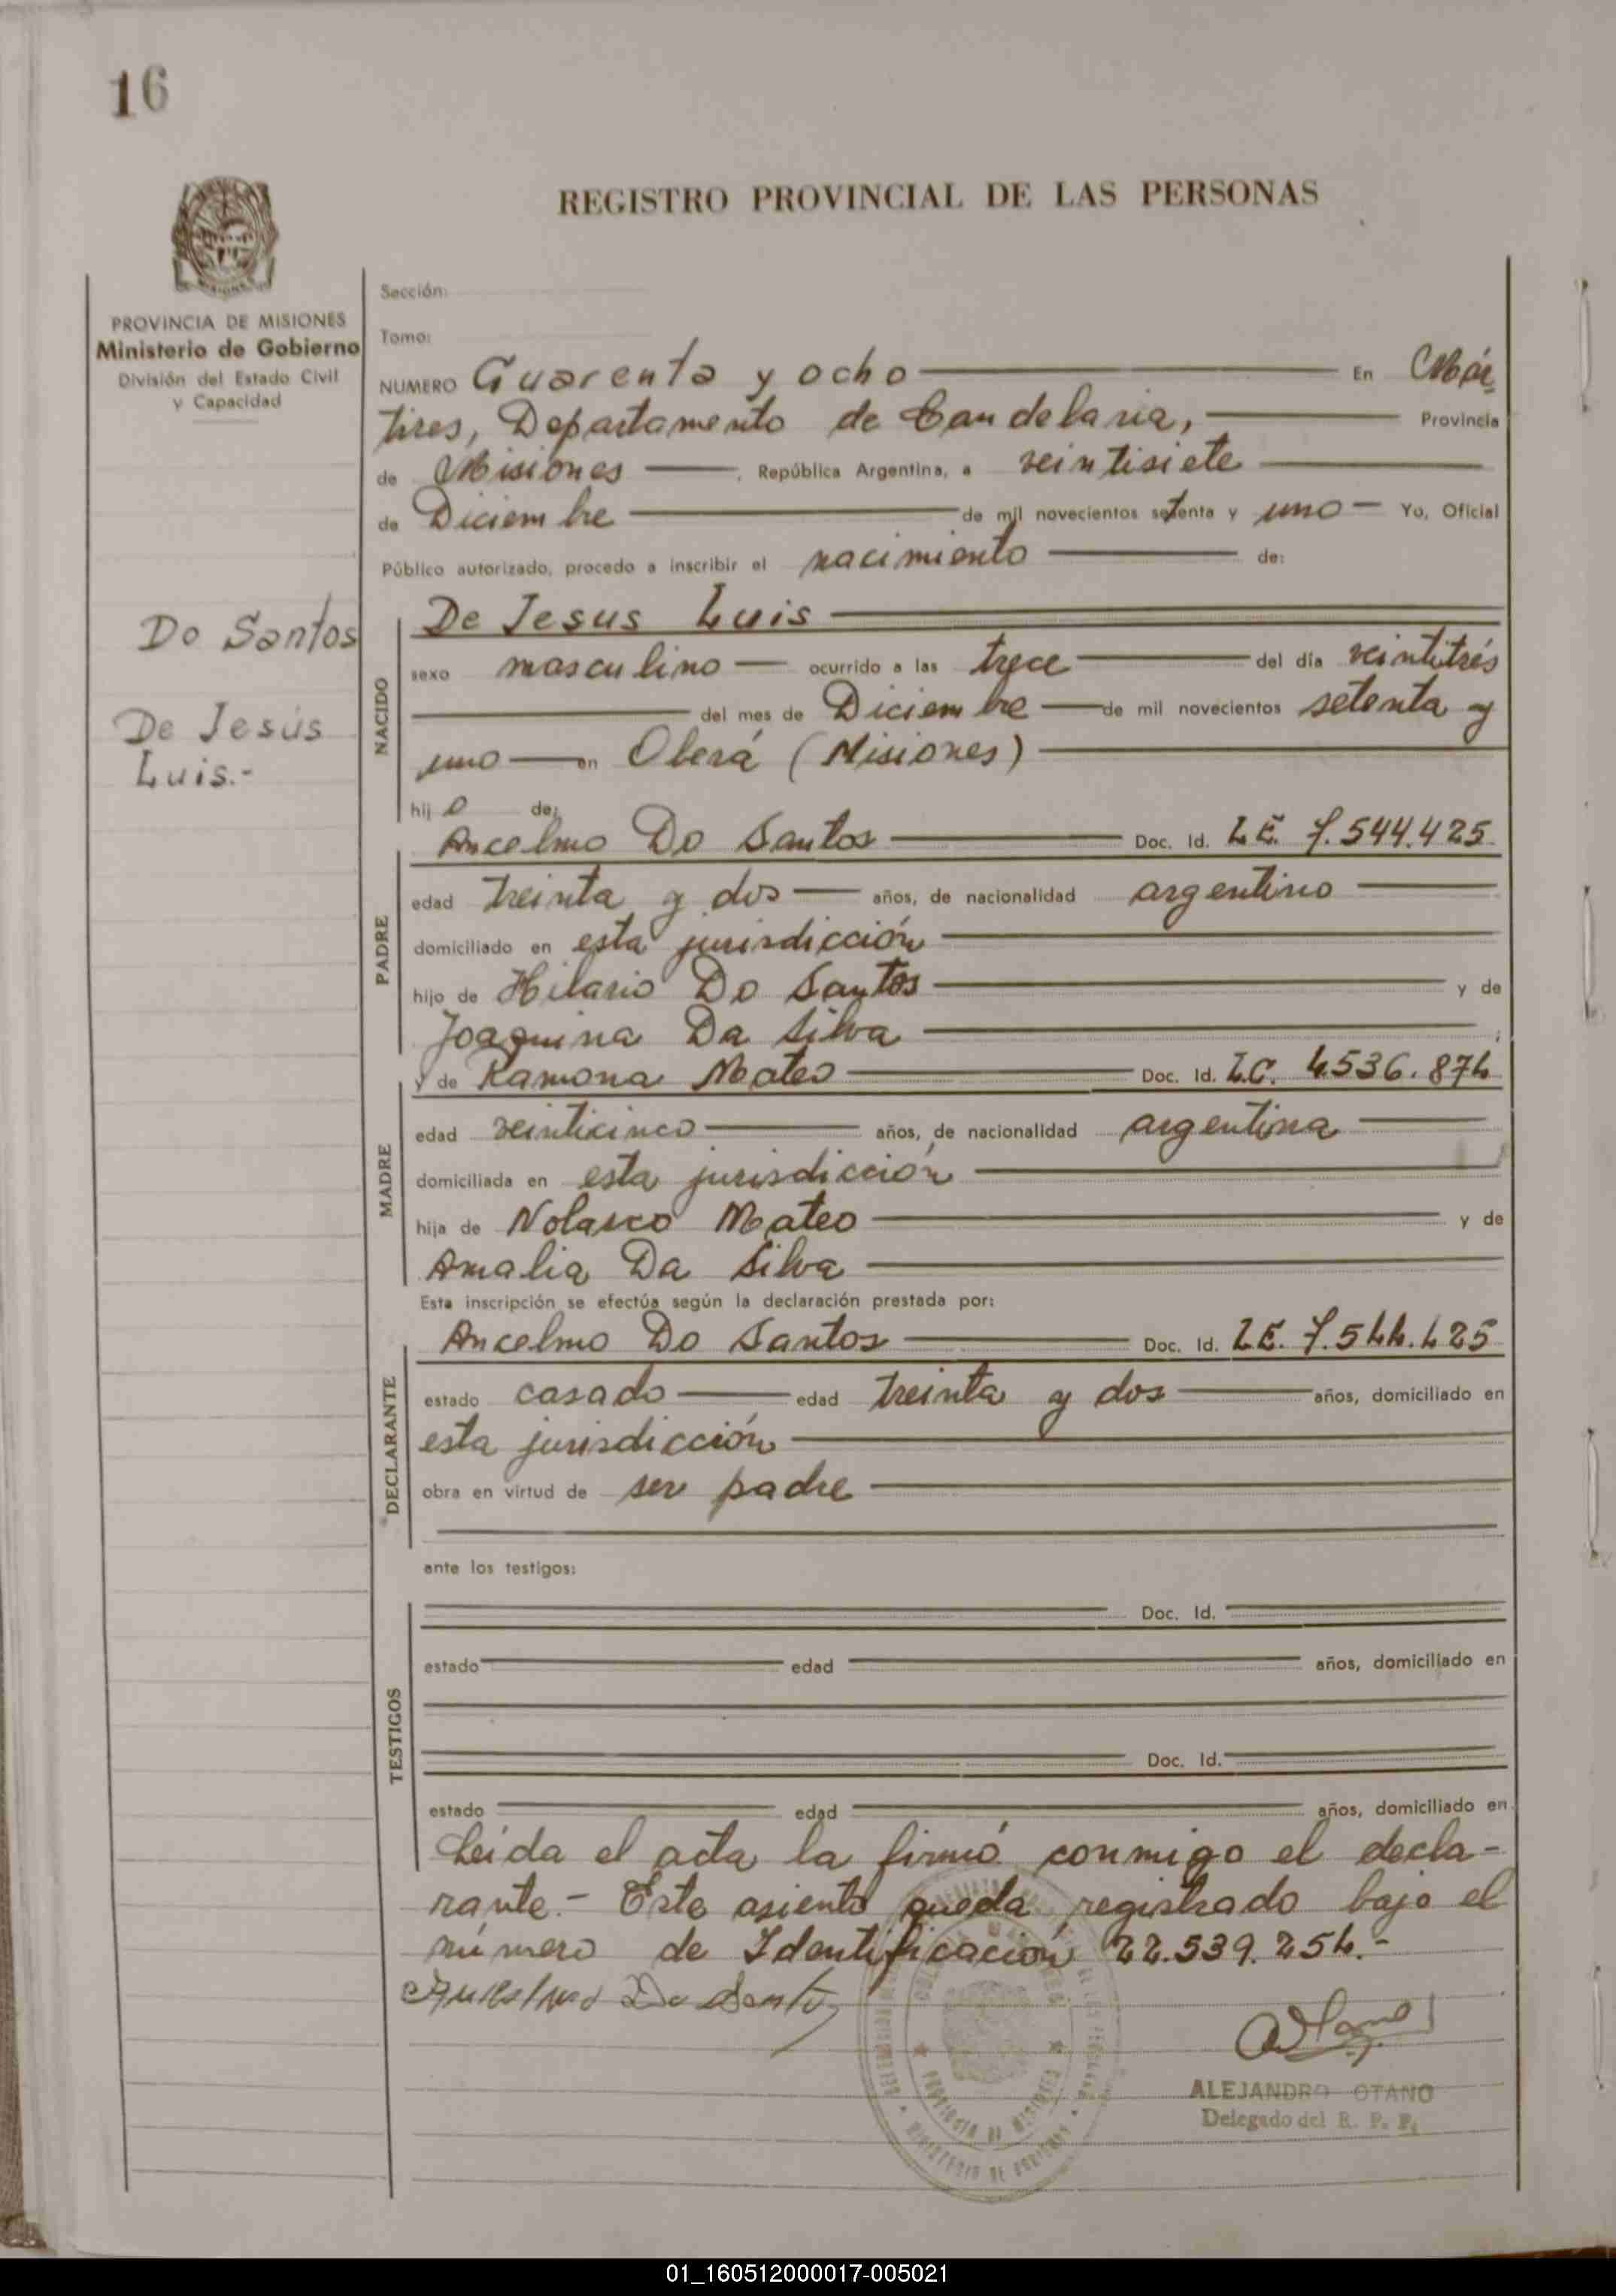 16
REGISTRO PROVINCIAL DE LAS PERSONAS
PROVINCIA DE MISIONES
Ministerio de Gobierno
División del Estado Civil
y Capacidad
Do Santos
De Jesús
Luis.-
Sección:
Tomo:
NUMERO Cuarenta y ocho En Már-
tires, Departamento de Candelaria, Provincia
de Misiones, República Argentina, a veintisiete
de Diciembre de mil novecientos setenta y uno Yo, Oficial
Público autorizado, procedo a inscribir el nacimiento de:
NACIDO
De Jesus Luis
sexo masculino ocurrido a las trece del día veintitrés
del mes de Diciembre de mil novecientos setenta y
uno en Oberá (Misiones)
hijo de:
PADRE
Ancelmo Do Santos Doc. Id. L.E. 7.544.425
edad treinta y dos años, de nacionalidad argentino
domiciliado en esta jurisdicción
hijo de Hilario Do Santos y de
Joaquina Da Silva ;
MADRE
y de Ramona Mateo Doc. Id. L.C. 4.536.874
edad veinticinco años, de nacionalidad argentina
domiciliada en esta jurisdicción
hija de Nolasco Mateo y de
Amalia Da Silva
Esta inscripción se efectúa según la declaración prestada por:
DECLARANTE
Ancelmo Do Santos Doc. Id. L.E. 7.544.425
estado casado edad treinta y dos años, domiciliado en
esta jurisdicción
obra en virtud de ser padre
ante los testigos:
TESTIGOS
Doc. Id.
estado edad años, domiciliado en
Doc. Id.
estado edad años, domiciliado en
Leída el acta la firmó conmigo el decla-
rante.- Este asiento queda registrado bajo el
número de Identificación 22.539.254.-
Do Santos
PROVINCIA DE MISIONES
ALEJANDRO OTANO
Delegado del R. P. P.
01_160512000017-005021